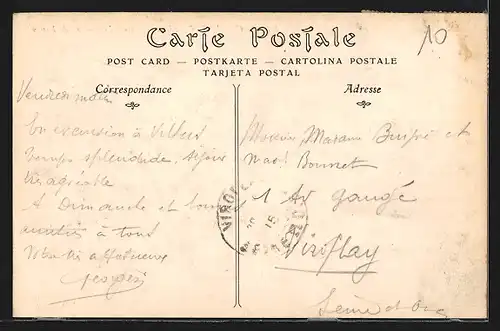 10
Carte Postale
POST CARD — POSTKARTE — CARTOLINA POSTALE
TARJETA POSTAL
Correspondance
Vendredi matin
En excursion à Villers
temps splendide, séjour
très agréable
A Dimanche et bonne
matin à tous
Votre très affectueux
Georges
Adresse
Monsieur, Madame et
Mad Bonnet
1 Av Gaugé
Viroflay
Seine et Oise
VIROFLAY
15